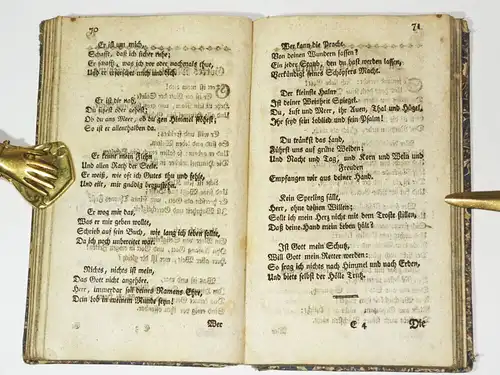 70
Er ist um mich,
Schafft, daß ich sicher ruhe;
Er schafft, was ich vor oder nachmals thue,
Und er erforschet mich und dich.
Er ist dir nah,
Du sitzest oder gehest;
Ob du ans Meer, ob du gen Himmel flöhest;
So ist er allenthalben da.
Er kennt mein Flehn
Und allen Rath der Seele.
Er weiß, wie oft ich Gutes thu und fehle,
Und eilt, mir gnädig beyzustehn.
Er wog mir dar,
Was er mir geben wollte,
Schrieb auf sein Buch, wie lang ich leben sollte,
Da ich noch unbereitet war.
Nichts, nichts ist mein,
Das Gott nicht angehöre.
Herr, immerdar soll deines Namens Ehre,
Dein Lob in meinem Munde seyn!
Wer
71
Wer kann die Pracht
Von deinen Wundern fassen?
Ein jeder Staub, den du hast werden lassen,
Verkündigt seines Schöpfers Macht.
Der kleinste Halm
Ist deiner Weisheit Spiegel.
Du, Luft und Meer, ihr Auen, Thal und Hügel,
Ihr seyd sein Loblied und sein Psalm!
Du tränkst das Land,
Führst uns auf grüne Weiden;
Und Nacht und Tag, und Korn und Wein und
Freuden
Empfangen wir aus deiner Hand.
Kein Sperling fällt,
Herr, ohne deinen Willen;
Sollt ich mein Herz nicht mit dem Troste stillen,
Daß deine Hand mein Leben hält?
Ist Gott mein Schutz,
Will Gott mein Retter werden:
So frag ich nichts nach Himmel und nach Erden,
Und biete selbst der Hölle Trutz.
E 4 Die